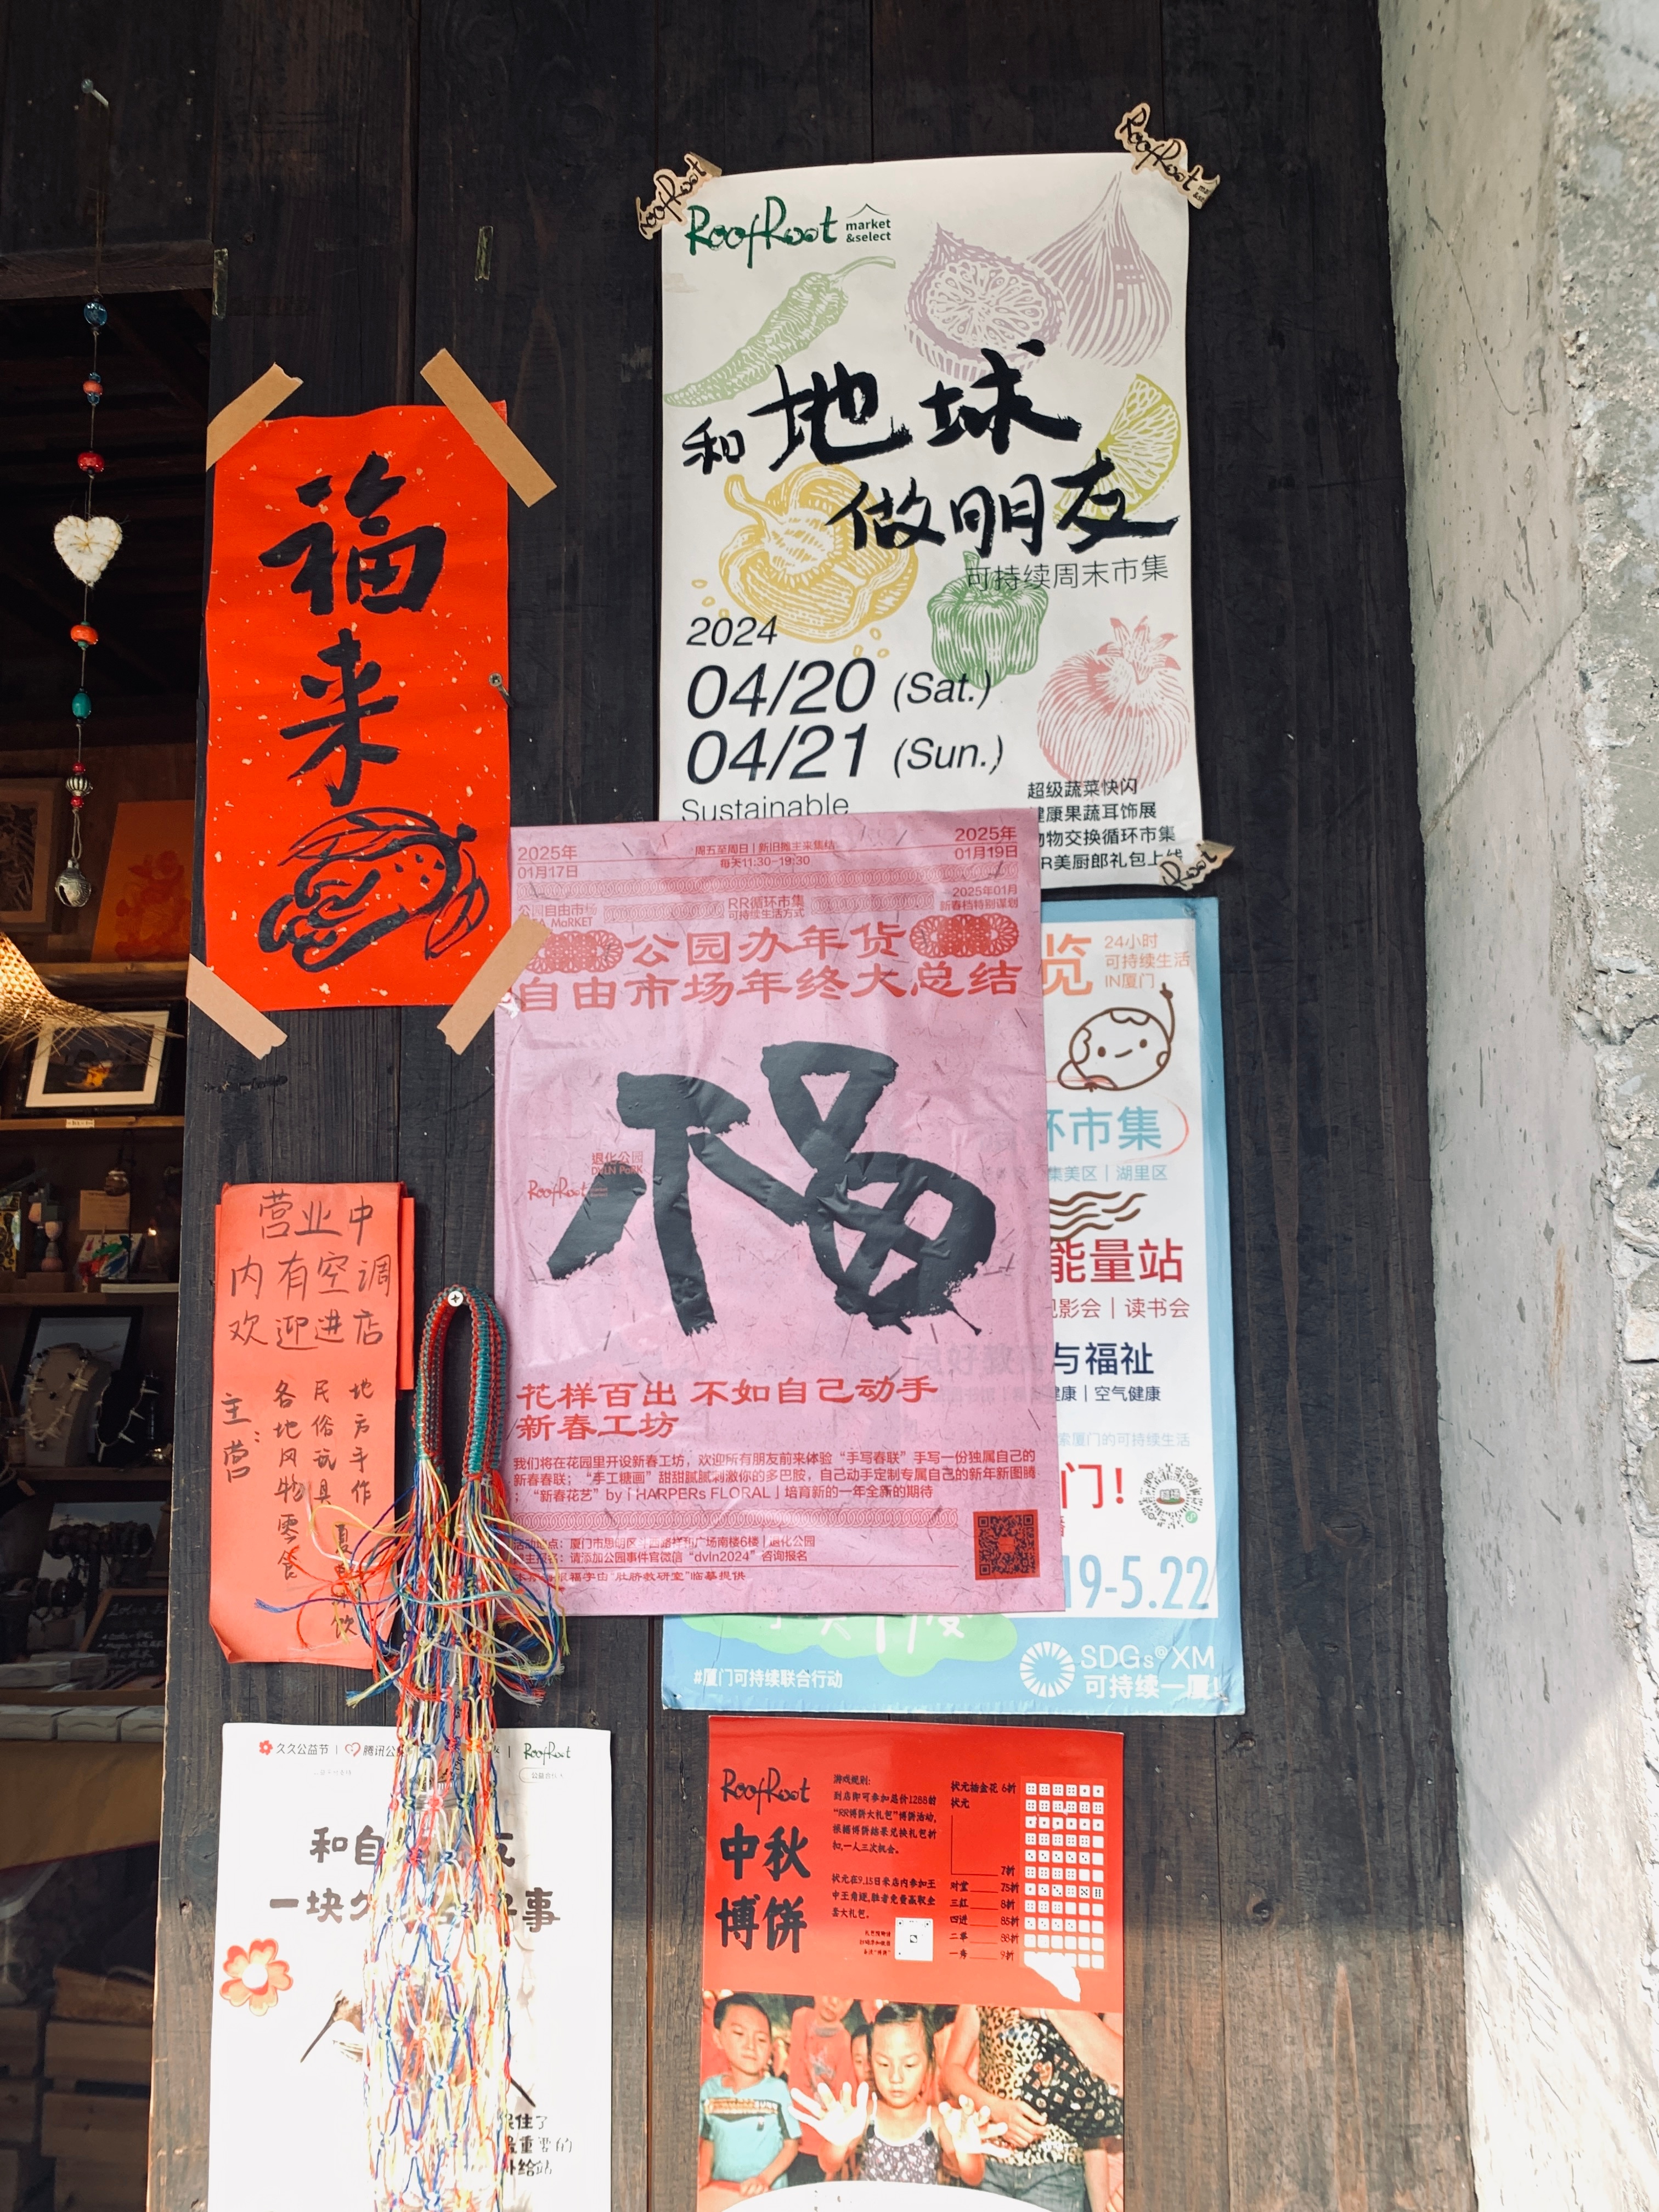 RoofRoot
RoofRoot
RoofRoot
market
&select
和地球
做朋友
可持续周末市集
2024
04/20 (Sat.)
04/21 (Sun.)
Sustainable
超级蔬菜快闪
健康果蔬耳饰展
物物交换循环市集
RR美厨郎礼包上线
Root
福
来
2025年
01月17日
周五至周日 | 新旧摊主来集结
每天11:30-19:30
2025年
01月19日
公园自由市场
MaRKET
RR循环市集
可持续生活方式
2025年01月
新春档特别谋划
公园办年货
自由市场年终大总结
退化公园
DVLN PaRK
RoofRoot
福
花样百出 不如自己动手
新春工坊
我们将在花园里开设新春工坊，欢迎所有朋友前来体验“手写春联”手写一份独属自己的
新春春联；“手工糖画”甜甜腻腻刺激你的多巴胺，自己动手定制专属自己的新年新图腾
；“新春花艺”by「HARPERs FLORAL」培育新的一年全新的期待
活动地点：厦门市思明区
广场南楼6楼 | 退化公园
请添加公园事件官微信“dvln2024”咨询报名
福字由“肚脐教研室”临摹提供
览
24小时
可持续生活
IN厦门
环市集
集美区 | 湖里区
能量站
观影会 | 读书会
与福祉
健康 | 空气健康
索厦门的可持续生活
门！
19-5.22
#厦门可持续联合行动
SDGs@XM
可持续一厦!
营业中
内有空调
欢迎进店
主营：
各地风物零售
民俗玩具
地方手作
夏
饮
久久公益节 | 腾讯公
RoofRoot
和自
友
一块
事
保住了
最重要的
补给站
RoofRoot
中秋
博饼
游戏规则:
到店即可参加总价1288的
“RR博饼大礼包”博饼活动,
根据博饼结果兑换礼包折
扣,一人三次机会。
状元在9.15日来店内参加王
中王角逐,胜者免费赢取全
套大礼包。
状元插金花 6折
状元
7折
对堂 75折
三红 8折
四进 85折
二举 88折
一秀 9折